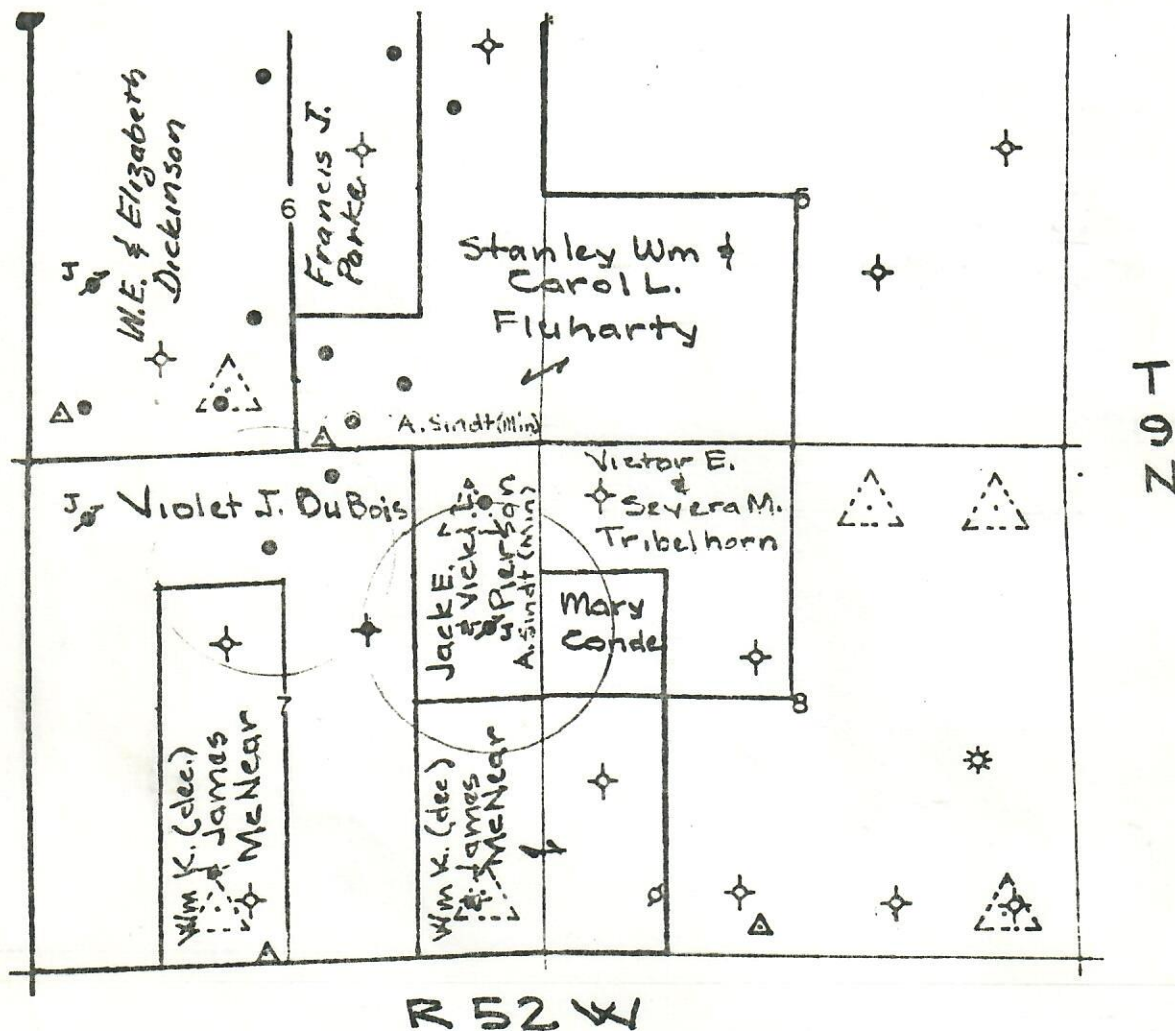 W.E. & Elizabeth
Dickinson
6
Francis J.
Parke
5
Stanley Wm &
Carol L.
Fluharty
J
A. Sindt (Min)
T
9
N
J
Violet J. DuBois
Jack E. &
Vicki L.
Pierson
A. Sindt (Min)
J
Victor E.
&
Severa M.
Tribelhorn
Mary
Conde
7
8
Wm K. (dec.)
& James
McNear
Wm K. (dec)
& James
McNear
R 52 W